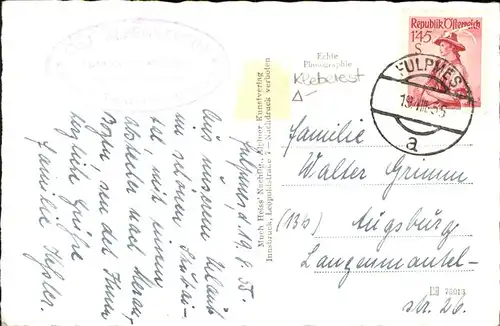 Republik Österreich
1.45
S
FULPMES
19.VIII.55
a
Echte
Photographie
Kleberest
Much Heiss' Nachflg., Alpiner Kunstverlag
Innsbruck, Leopoldstraße 7 – Nachdruck verboten
Fulpmes, d. 19. 8. 55.
Aus unserem Urlaub
im schönen Stubai-
tal mit einem
nach Meran,
Bozen, sendet Ihnen
herzliche Grüße
Familie
Familie
Walter Grimm
(13b) Augsburg
Langenmantel-
str. 26.
75013